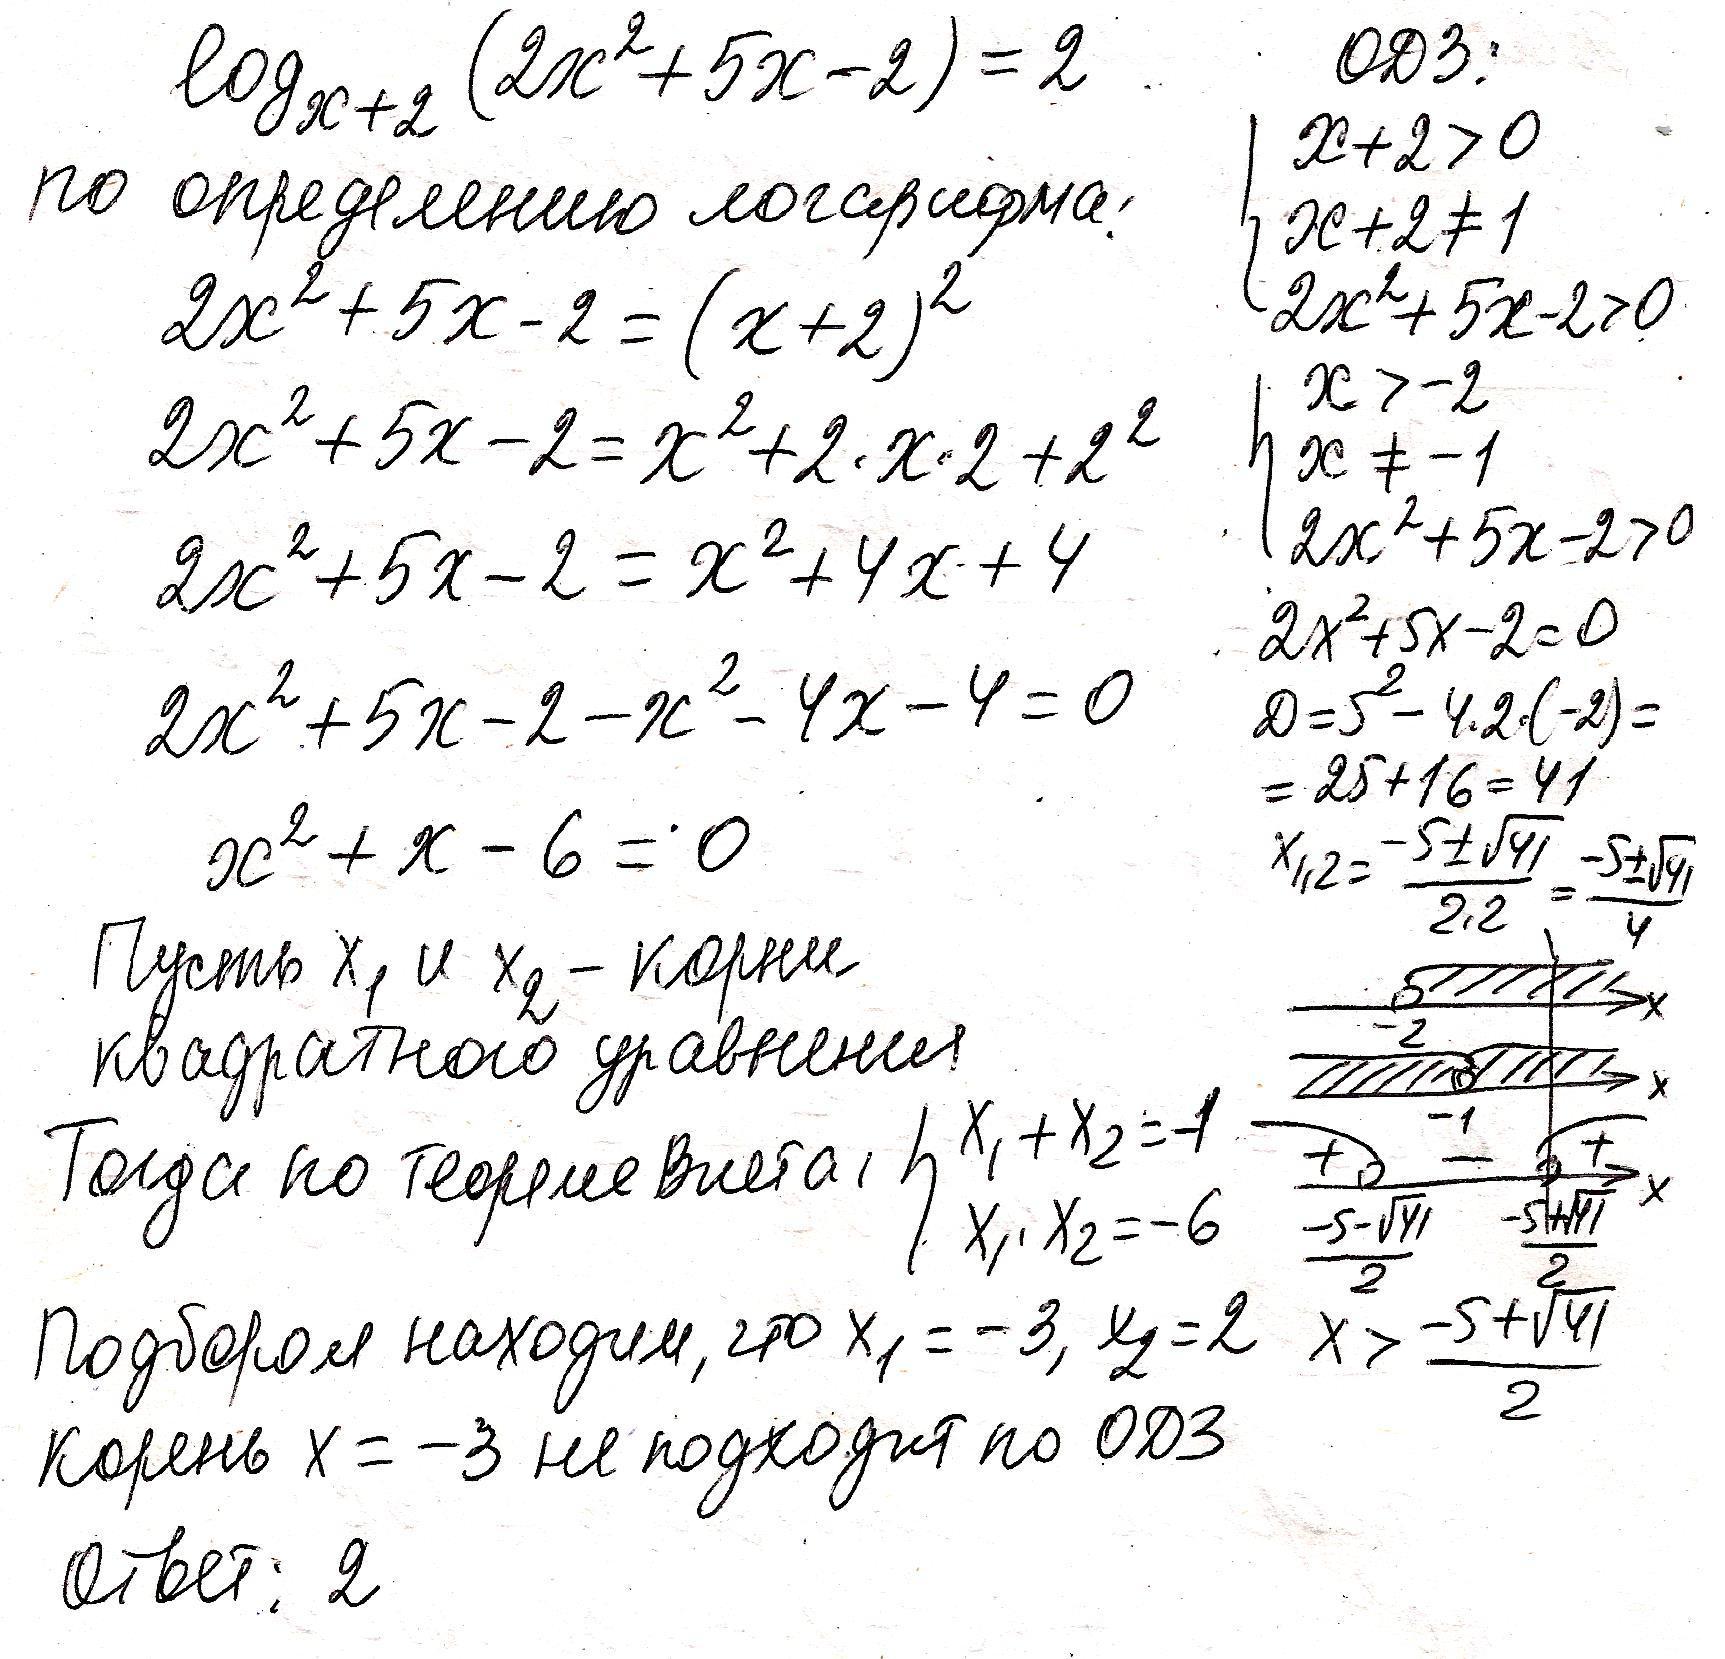 log_{x+2} (2x² + 5x - 2) = 2
по определению логарифма:
2x² + 5x - 2 = (x + 2)²
2x² + 5x - 2 = x² + 2 · x · 2 + 2²
2x² + 5x - 2 = x² + 4x + 4
2x² + 5x - 2 - x² - 4x - 4 = 0
x² + x - 6 = 0
Пусть x₁ и x₂ - корни
квадратного уравнения
Тогда по теореме Виета,
{ x₁ + x₂ = -1
x₁ · x₂ = -6
Подбором находим, что x₁ = -3, x₂ = 2
корень x = -3 не подходит по ОДЗ
Ответ: 2
ОДЗ:
{ x + 2 > 0
x + 2 ≠ 1
2x² + 5x - 2 > 0
{ x > -2
x ≠ -1
2x² + 5x - 2 > 0
2x² + 5x - 2 = 0
D = 5² - 4 · 2 · (-2) =
= 25 + 16 = 41
x₁,₂ = (-5 ± √41)/(2·2) = (-5 ± √41)/4
-2 x
-1 x
+ - + x
(-5 - √41)/2 (-5 + √41)/2
x > (-5 + √41)/2